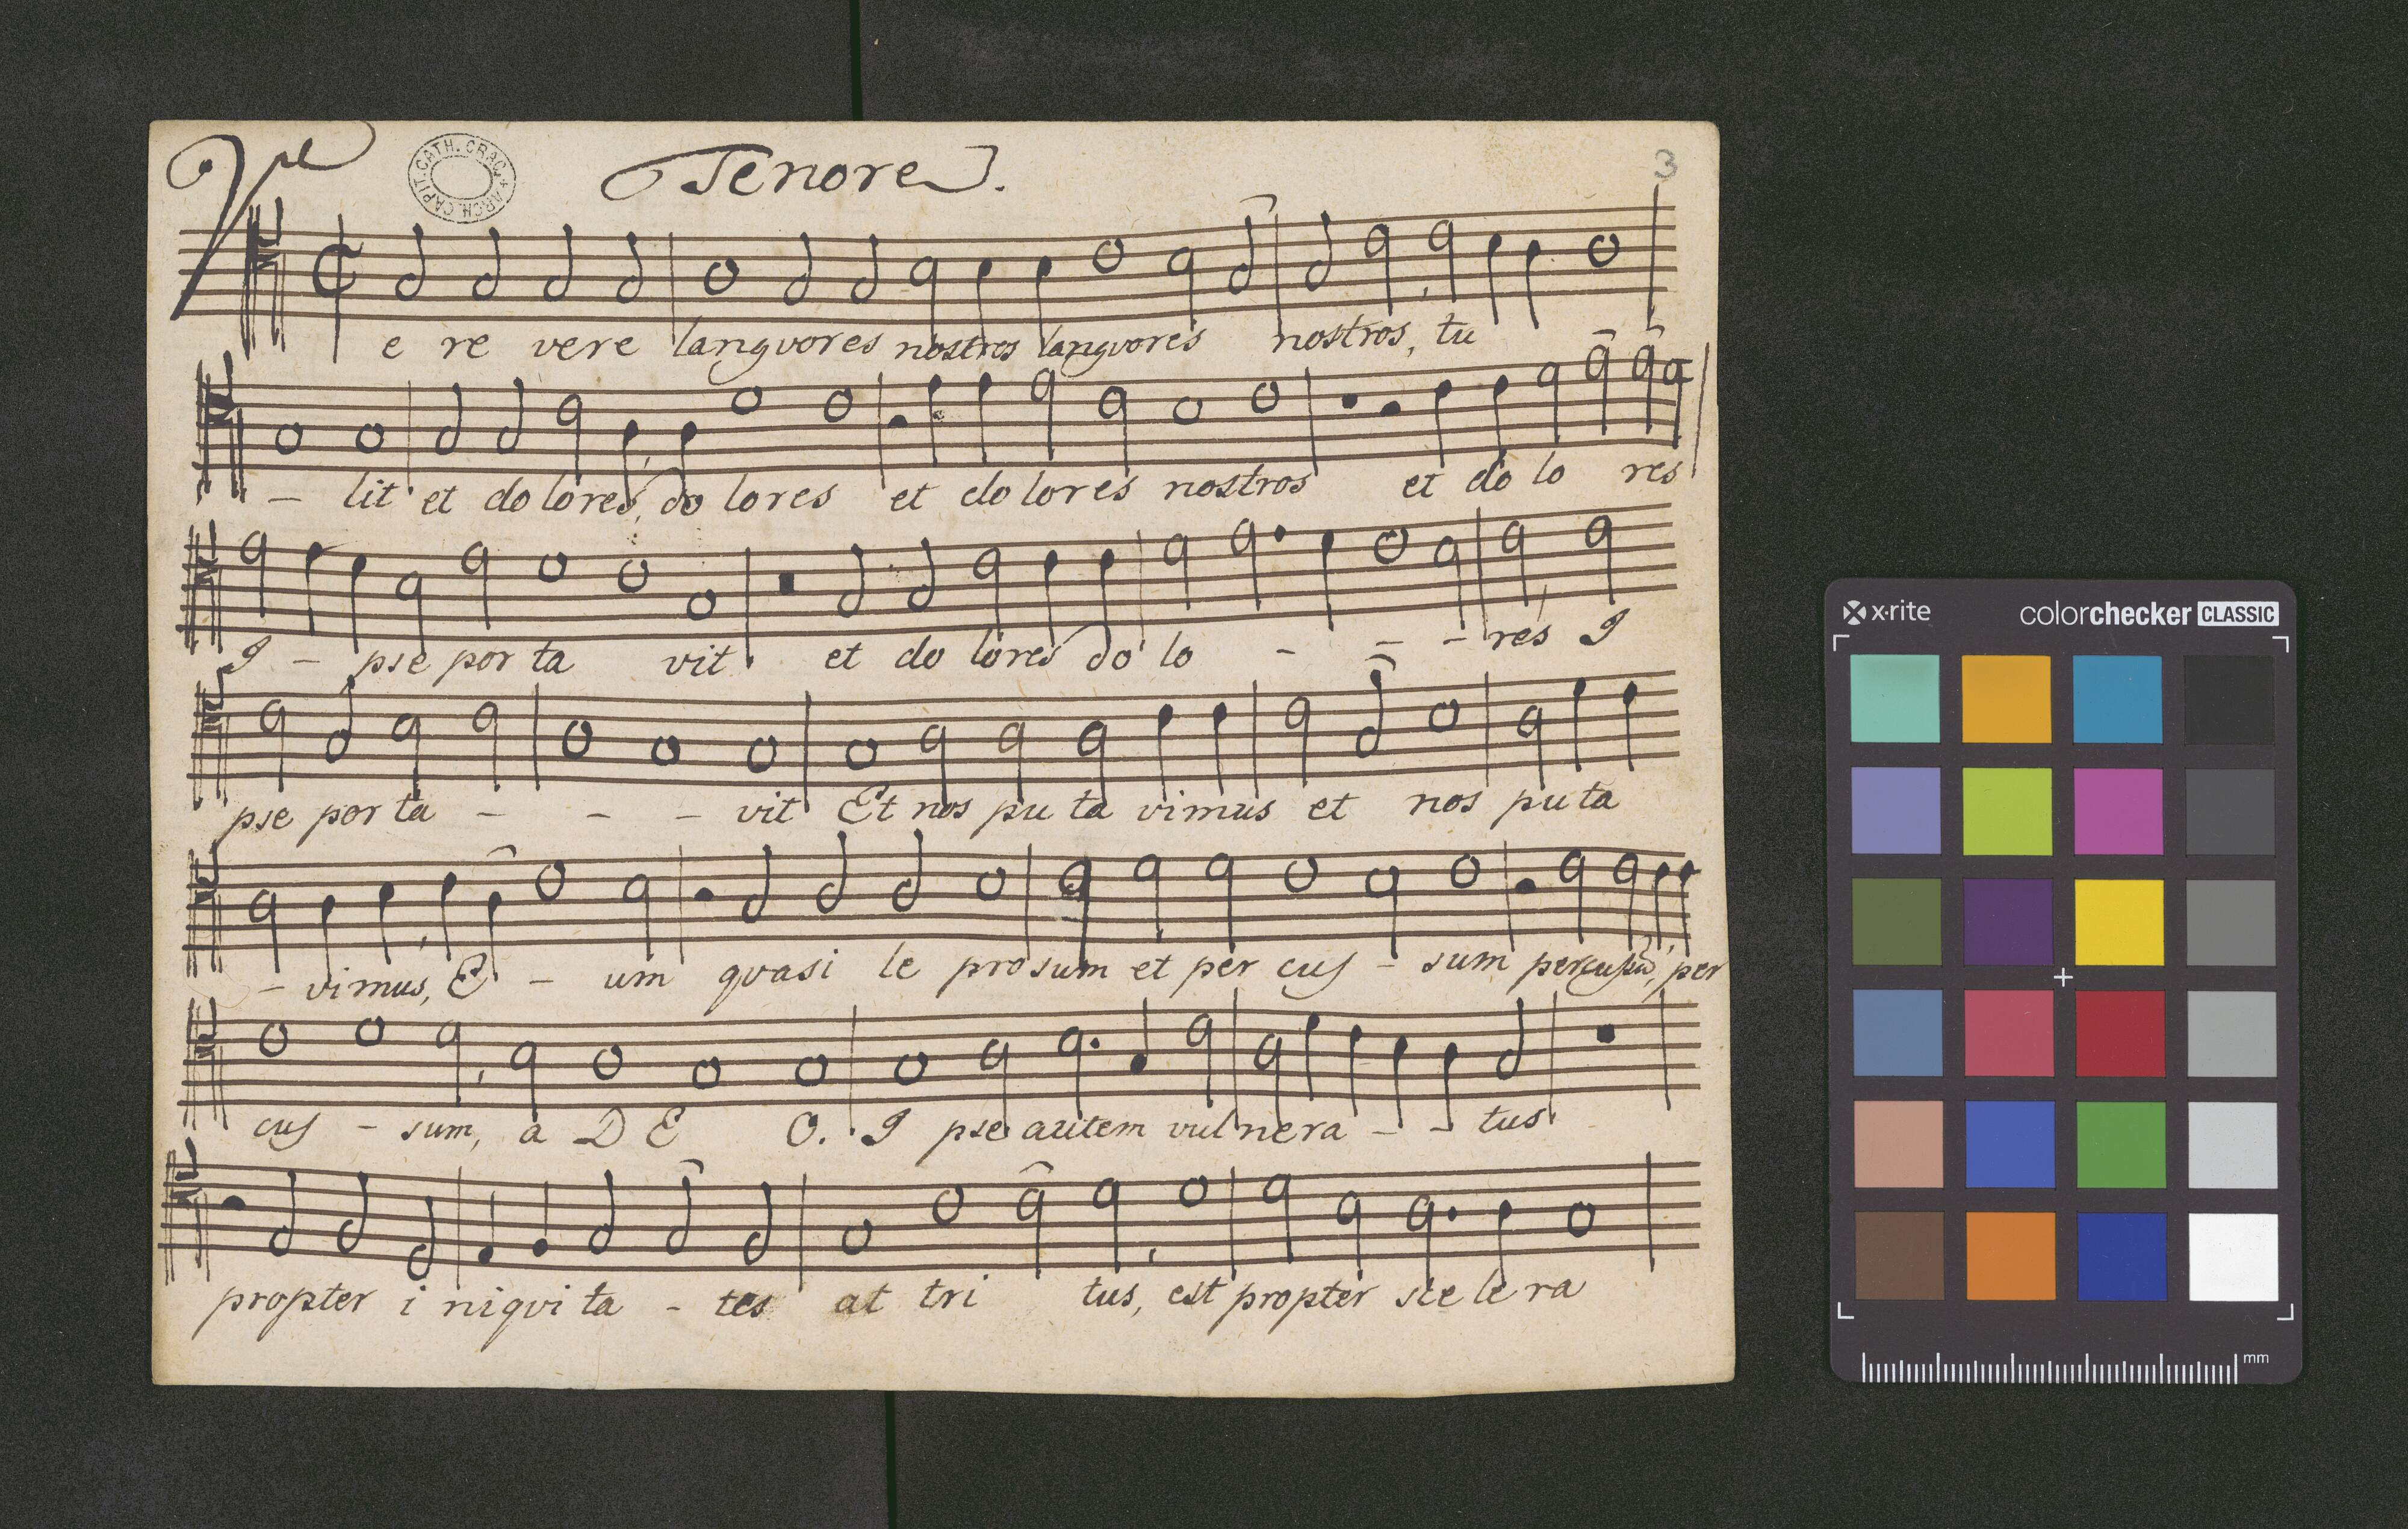 Tenore. 3
ARCH. CAPIT. CATH. CRAC.
Ve e re vere langvores nostros langvores nostros, tu
- lit et do lores, do lores et dolores nostros et do lo res
I - pse por ta vit et do lores do lo - - - res I
pse por ta - - - vit Et nos pu ta vimus et nos pu ta
- vimus, E - um qvasi le prosum et per cus - sum percussũ, per
cus - sum, a D E O. I pse autem vulnera - - tus
propter i niqvi ta - tes at tri tus, est propter sce le ra
x·rite colorchecker CLASSIC
mm